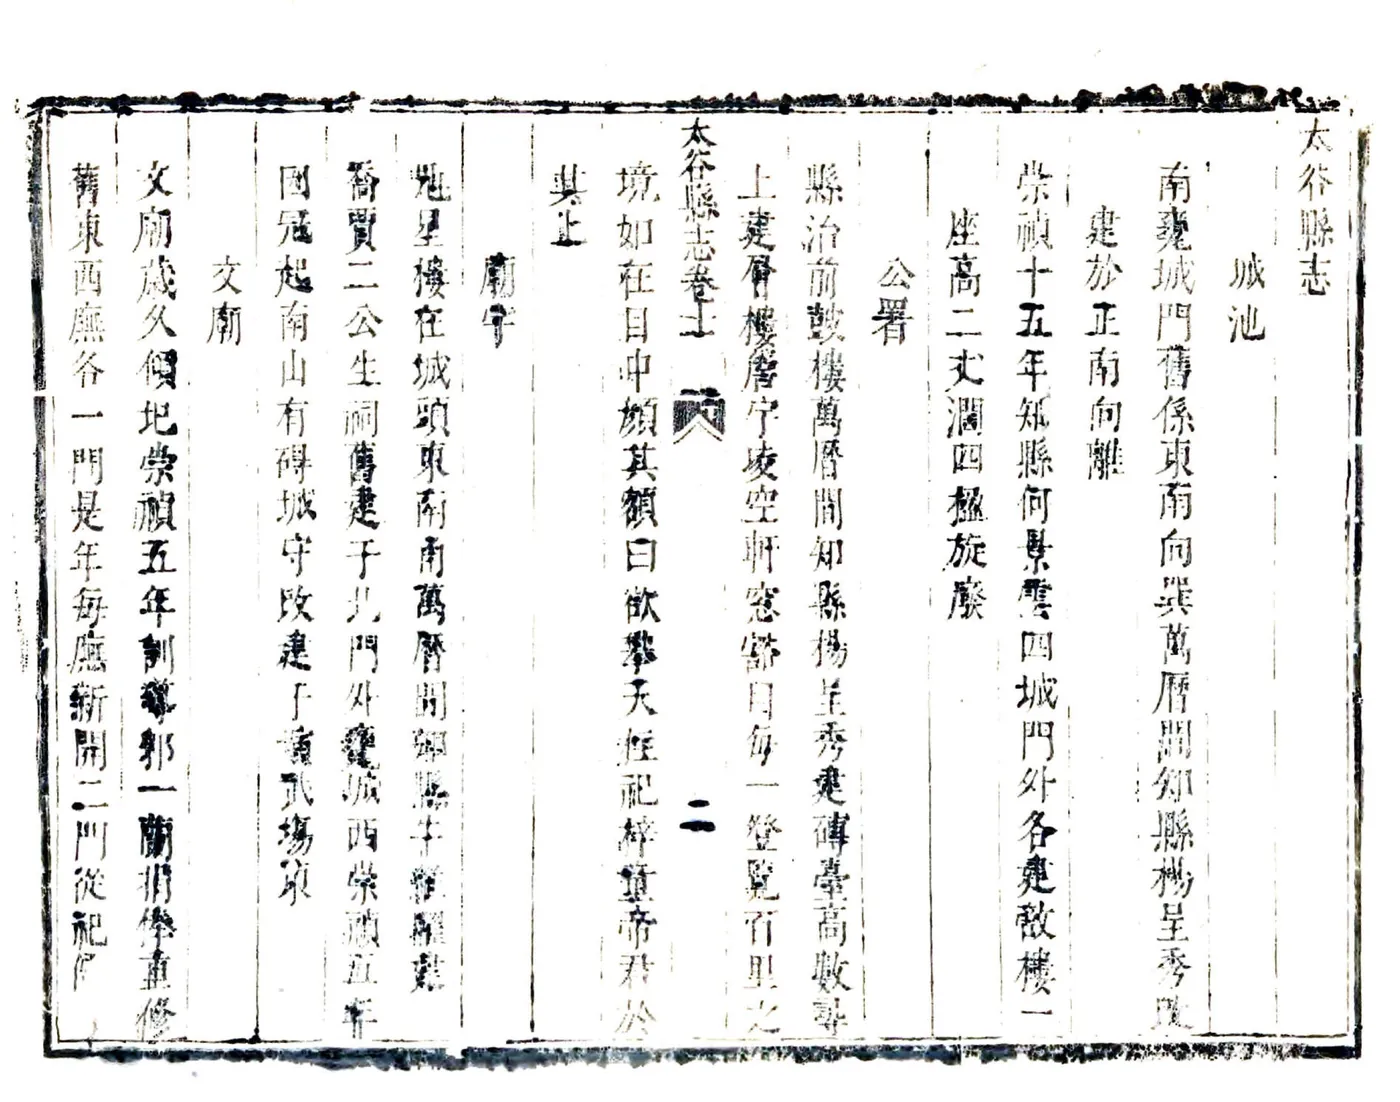 太谷縣志
城池
南甕城門舊係東南向巽萬曆間知縣楊呈秀改
建於正南向離
崇禎十五年知縣何景雲四城門外各建敵樓一
座高二丈濶四楹旋廢
公署
縣治前鼓樓萬曆間知縣楊呈秀建磚臺高數尋
上建層樓簷宇凌空軒窓豁目每一登覽百里之
境如在目中顏其額曰欲攀天姥祀梓童帝君於
其上
太谷縣志卷 二
廟宇
魁星樓在城頭東南萬曆間知縣
喬賈二公生祠舊建于北門外甕城西崇禎五年
因冠起南山有碍城守改建于演武場東
文廟
文廟歲久傾圮崇禎五年訓導郭一蘭捐俸重修
舊東西廡各一門是年每廡新開二門從祀